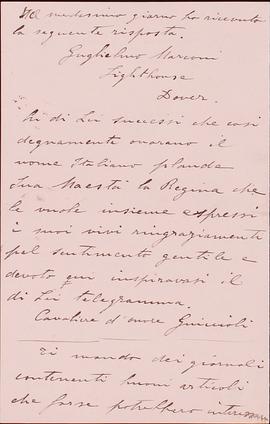 Il medesimo giorno ho ricevuto
la seguente risposta.
Guglielmo Marconi
Lighthouse
Dover.
"Ai di Lei successi che così
degnamente onorano il
nome Italiano plaude
Sua Maestà la Regina che
le vuole insieme espressi
i suoi vivi ringraziamenti
pel sentimento gentile e
devoto cui inspiravasi il
di Lei telegramma.
Cavaliere d'onore Guiccioli
Ti mando dei giornali
contenenti buoni articoli
che forse potrebbero